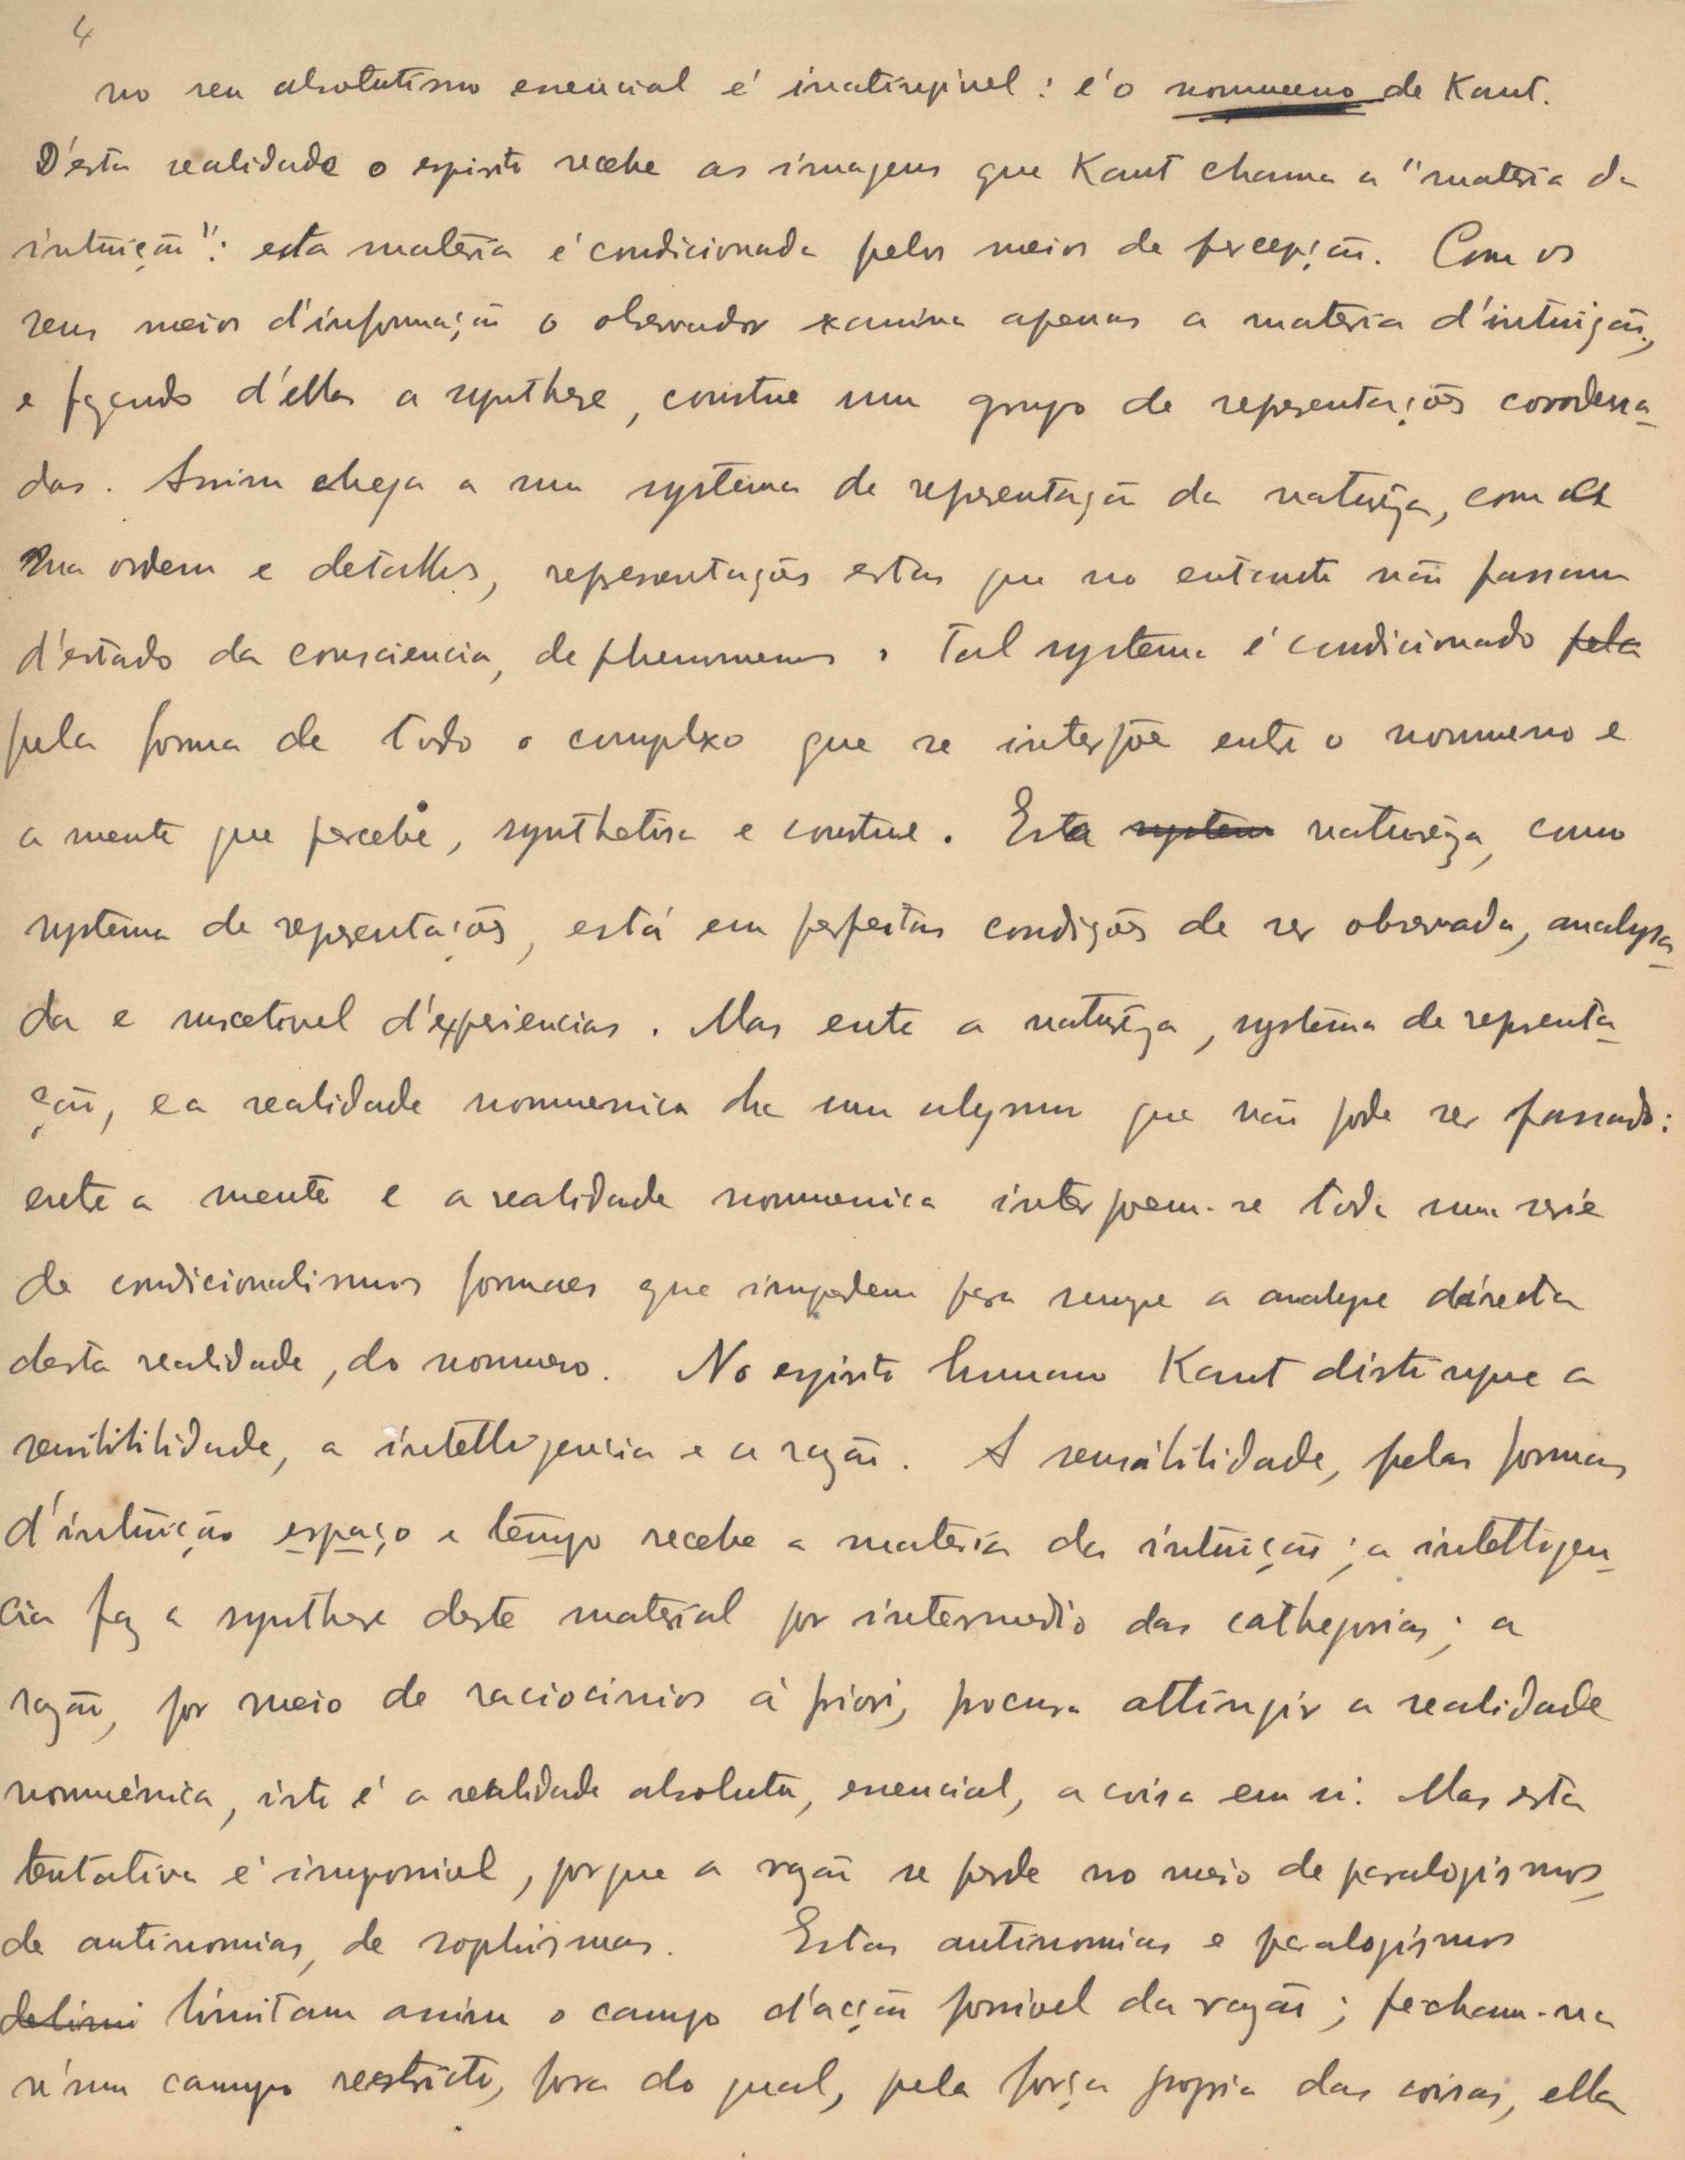 4
no seu absolutismo essencial é inatingivel: é o noumeno de Kant.
D'esta realidade o espirito recebe as imagens que Kant chama a "materia da
intuição": esta materia é condicionada pelos meios de percepção. Com os
seus meios d'informação o observador examina apenas a materia d'intuição,
e fazendo d'ellas a synthese, construe um grupo de representações coordena-
das. Assim chega a um systema de representação da natureza, com a
sua ordem e detalhes, representações estas que no entanto não passam
d'estado da consciencia, de phenomenos. Tal systema é condicionado pela
pela forma de todo o complexo que se interpõe entre o noumeno e
a mente que percebe, synthetisa e construe. Esta system natureza, como
systema de representações, está em perfeitas condições de ser observada, analysa-
da e suscetivel d'experiencias. Mas entre a natureza, systema de representa-
ção, e a realidade noumenica ha um abysmo que não pode ser passado:
entre a mente e a realidade noumenica interpoem-se toda uma serie
de condicionalismos formaes que impedem para sempre a analyse directa
desta realidade, do noumeno. No espirito humano Kant distingue a
sensibilidade, a intelligencia e a razão. A sensibilidade, pelas formas
d'intuição espaço e tempo recebe a materia da intuição; a intelligen-
cia faz a synthese deste material por intermedio das cathegorias; a
razão, por meio de raciocinios á priori, procura attingir a realidade
nouménica, isto é a realidade absoluta, essencial, a coisa em si. Mas esta
tentativa é impossivel, porque a razão se perde no meio de paralogismos,
de antinomias, de sophismas. Estas antinomias e paralogismos
delimi limitam assim o campo d'acção possivel da razão; fecham-na
n'um campo restricto, fora do qual, pela força propria das coisas, ella